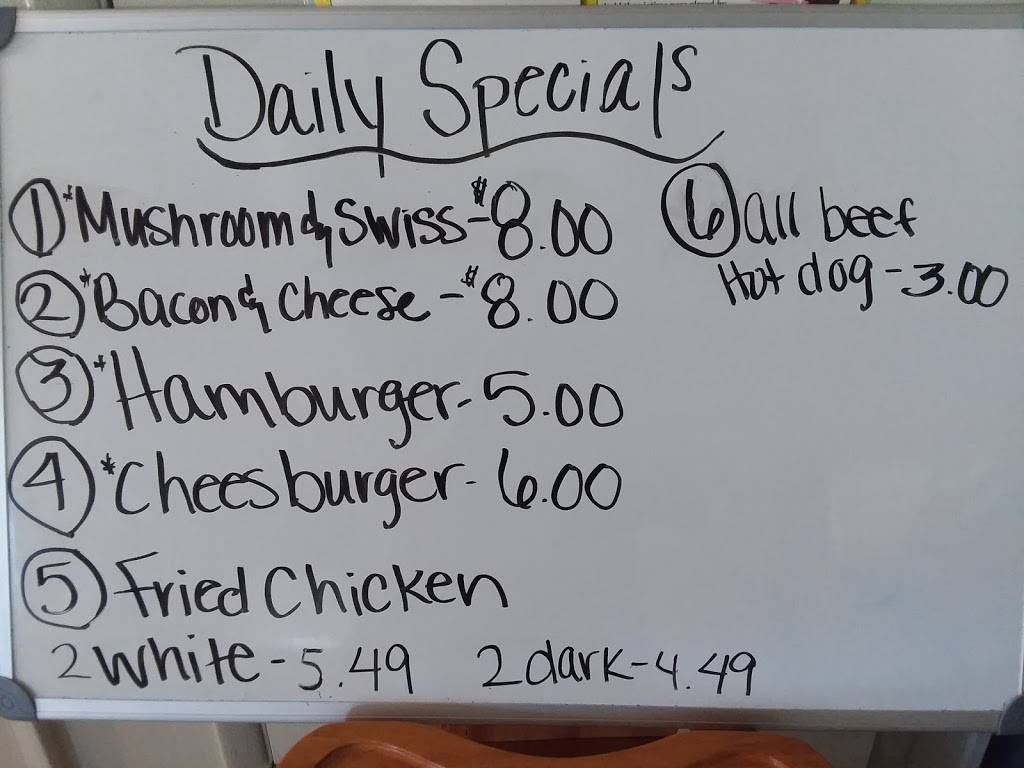 Daily Specials
① *Mushroom & Swiss - $8.00
② *Bacon & Cheese - $8.00
③ *Hamburger - 5.00
④ *Cheesburger - 6.00
⑤ Fried Chicken
2 White - 5.49 2 dark - 4.49
⑥ all beef
Hot dog - 3.00